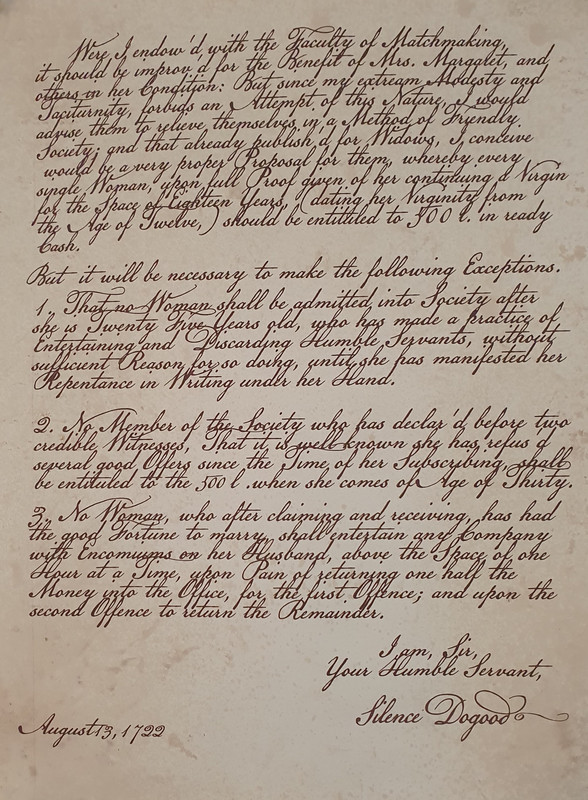 Were I endow'd with the Faculty of Matchmaking,
it should be improv'd for the Benefit of Mrs. Margaret, and
others in her Condition: But since my extream Modesty and
Taciturnity, forbids an Attempt of this Nature, I would
advise them to relieve themselves in a Method of Friendly
Society; and that already publish'd for Widows, I conceive
would be a very proper Proposal for them, whereby every
single Woman, upon full Proof given of her continuing a Virgin
for the Space of Eighteen Years, (dating her Virginity from
the Age of Twelve,) should be entituled to 500 l. in ready
Cash.
But it will be necessary to make the following Exceptions.
1. That no Woman shall be admitted into Society after
she is Twenty Five Years old, who has made a practice of
Entertaining and Discarding Humble Servants, without
sufficient Reason for so doing, until she has manifested her
Repentance in Writing under her Hand.
2. No Member of the Society who has declar'd before two
credible Witnesses, That it is well known she has refus'd
several good Offers since the Time of her Subscribing, shall
be entituled to the 500 l. when she comes of Age of Thirty.
3. No Woman, who after claiming and receiving, has had
the good Fortune to marry, shall entertain any Company
with Encomiums on her Husband, above the Space of one
Hour at a Time, upon Pain of returning one half the
Money into the Office, for the first Offence; and upon the
second Offence to return the Remainder.
I am, Sir,
Your Humble Servant,
Silence Dogood.
August 13, 1722